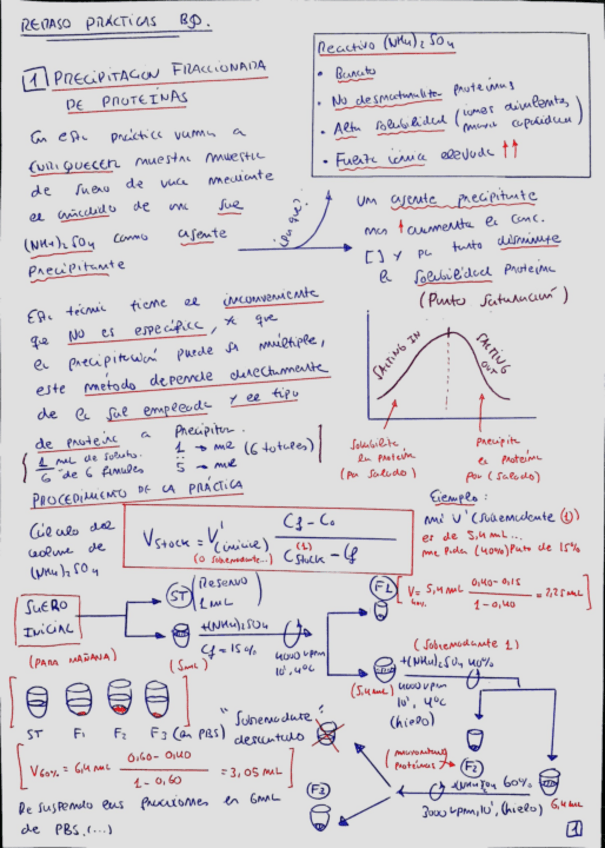 REPASO PRÁCTICAS BQ.
1 PRECIPITACIÓN FRACCIONADA
DE PROTEÍNAS
En esta práctica vamos a
ENRIQUECER nuestra muestra
de suero de vaca mediante
el añadido de una sal
(NH4)2SO4 como agente
Precipitante
Reactivo (NH4)2SO4
• Barato
• No desnaturaliza proteínas
• Alta solubilidad (iones divalentes,
• Fuerza iónica elevada ↑↑
¿Por qué?
Un agente precipitante
nos ↑ aumenta la conc.
[ ] y por tanto disminuye
la solubilidad Proteína
(Punto saturación)
Esta técnica tiene el inconveniente
que NO es específica, ya que
la precipitación puede ser múltiple,
este método depende directamente
de la sal empleada y el tipo
de proteína a Precipitar.
1/6 mL de soluto.
de 6 finales
1 → mL
5 → mL
(6 totales)
SALTING IN
SALTING OUT
Solubiliza
la proteína
(por salado)
Precipita
la proteína
por (salado)
PROCEDIMIENTO DE LA PRÁCTICA
Cálculo del
volumen de
(NH4)2SO4
V stock = V' (inicial) (Cf - Co) / (C stock (1) - Cf)
(o sobrenadante...)
Ejemplo:
mi V' (sobrenadante 1)
es de 5,4 mL...
me pida (40%) Puto de 15%
V 40% = 5,4 mL (0,40 - 0,15) / (1 - 0,40) = 2,25 mL
SUERO
INICIAL
(PARA MAÑANA)
ST (Reservo
1 mL)
(5 mL)
+(NH4)2SO4
Cf = 15%
4000 rpm
10', 4ºC
F1
(Sobrenadante 1)
+(NH4)2SO4 40%
(5,4 mL) 4000 rpm
10', 4ºC
(hielo)
ST F1 F2 F3 (en PBS)
"Sobrenadante"
descartado
V 60% = 6,4 mL (0,60 - 0,40) / (1 - 0,60) = 3,05 mL
F2
(NH4)2SO4 60%
3000 rpm, 10', (hielo)
6,4 mL
F3
Resuspendo las fracciones en 6 mL
de PBS. (...)
1